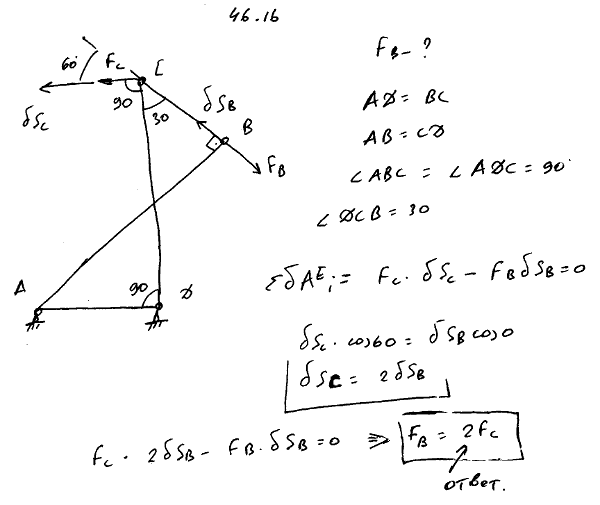 46.16
F_B - ?
60° F_C C
δS_C 90 30 δS_B B
F_B
A 90 D
AD = BC
AB = CD
∠ABC = ∠ADC = 90°
∠DCB = 30
ΣδA^E_i = F_C · δS_C - F_B δS_B = 0
δS_C · cos60 = δS_B cos0
δS_C = 2δS_B
F_C · 2δS_B - F_B · δS_B = 0 ⇒ F_B = 2F_C
ответ.